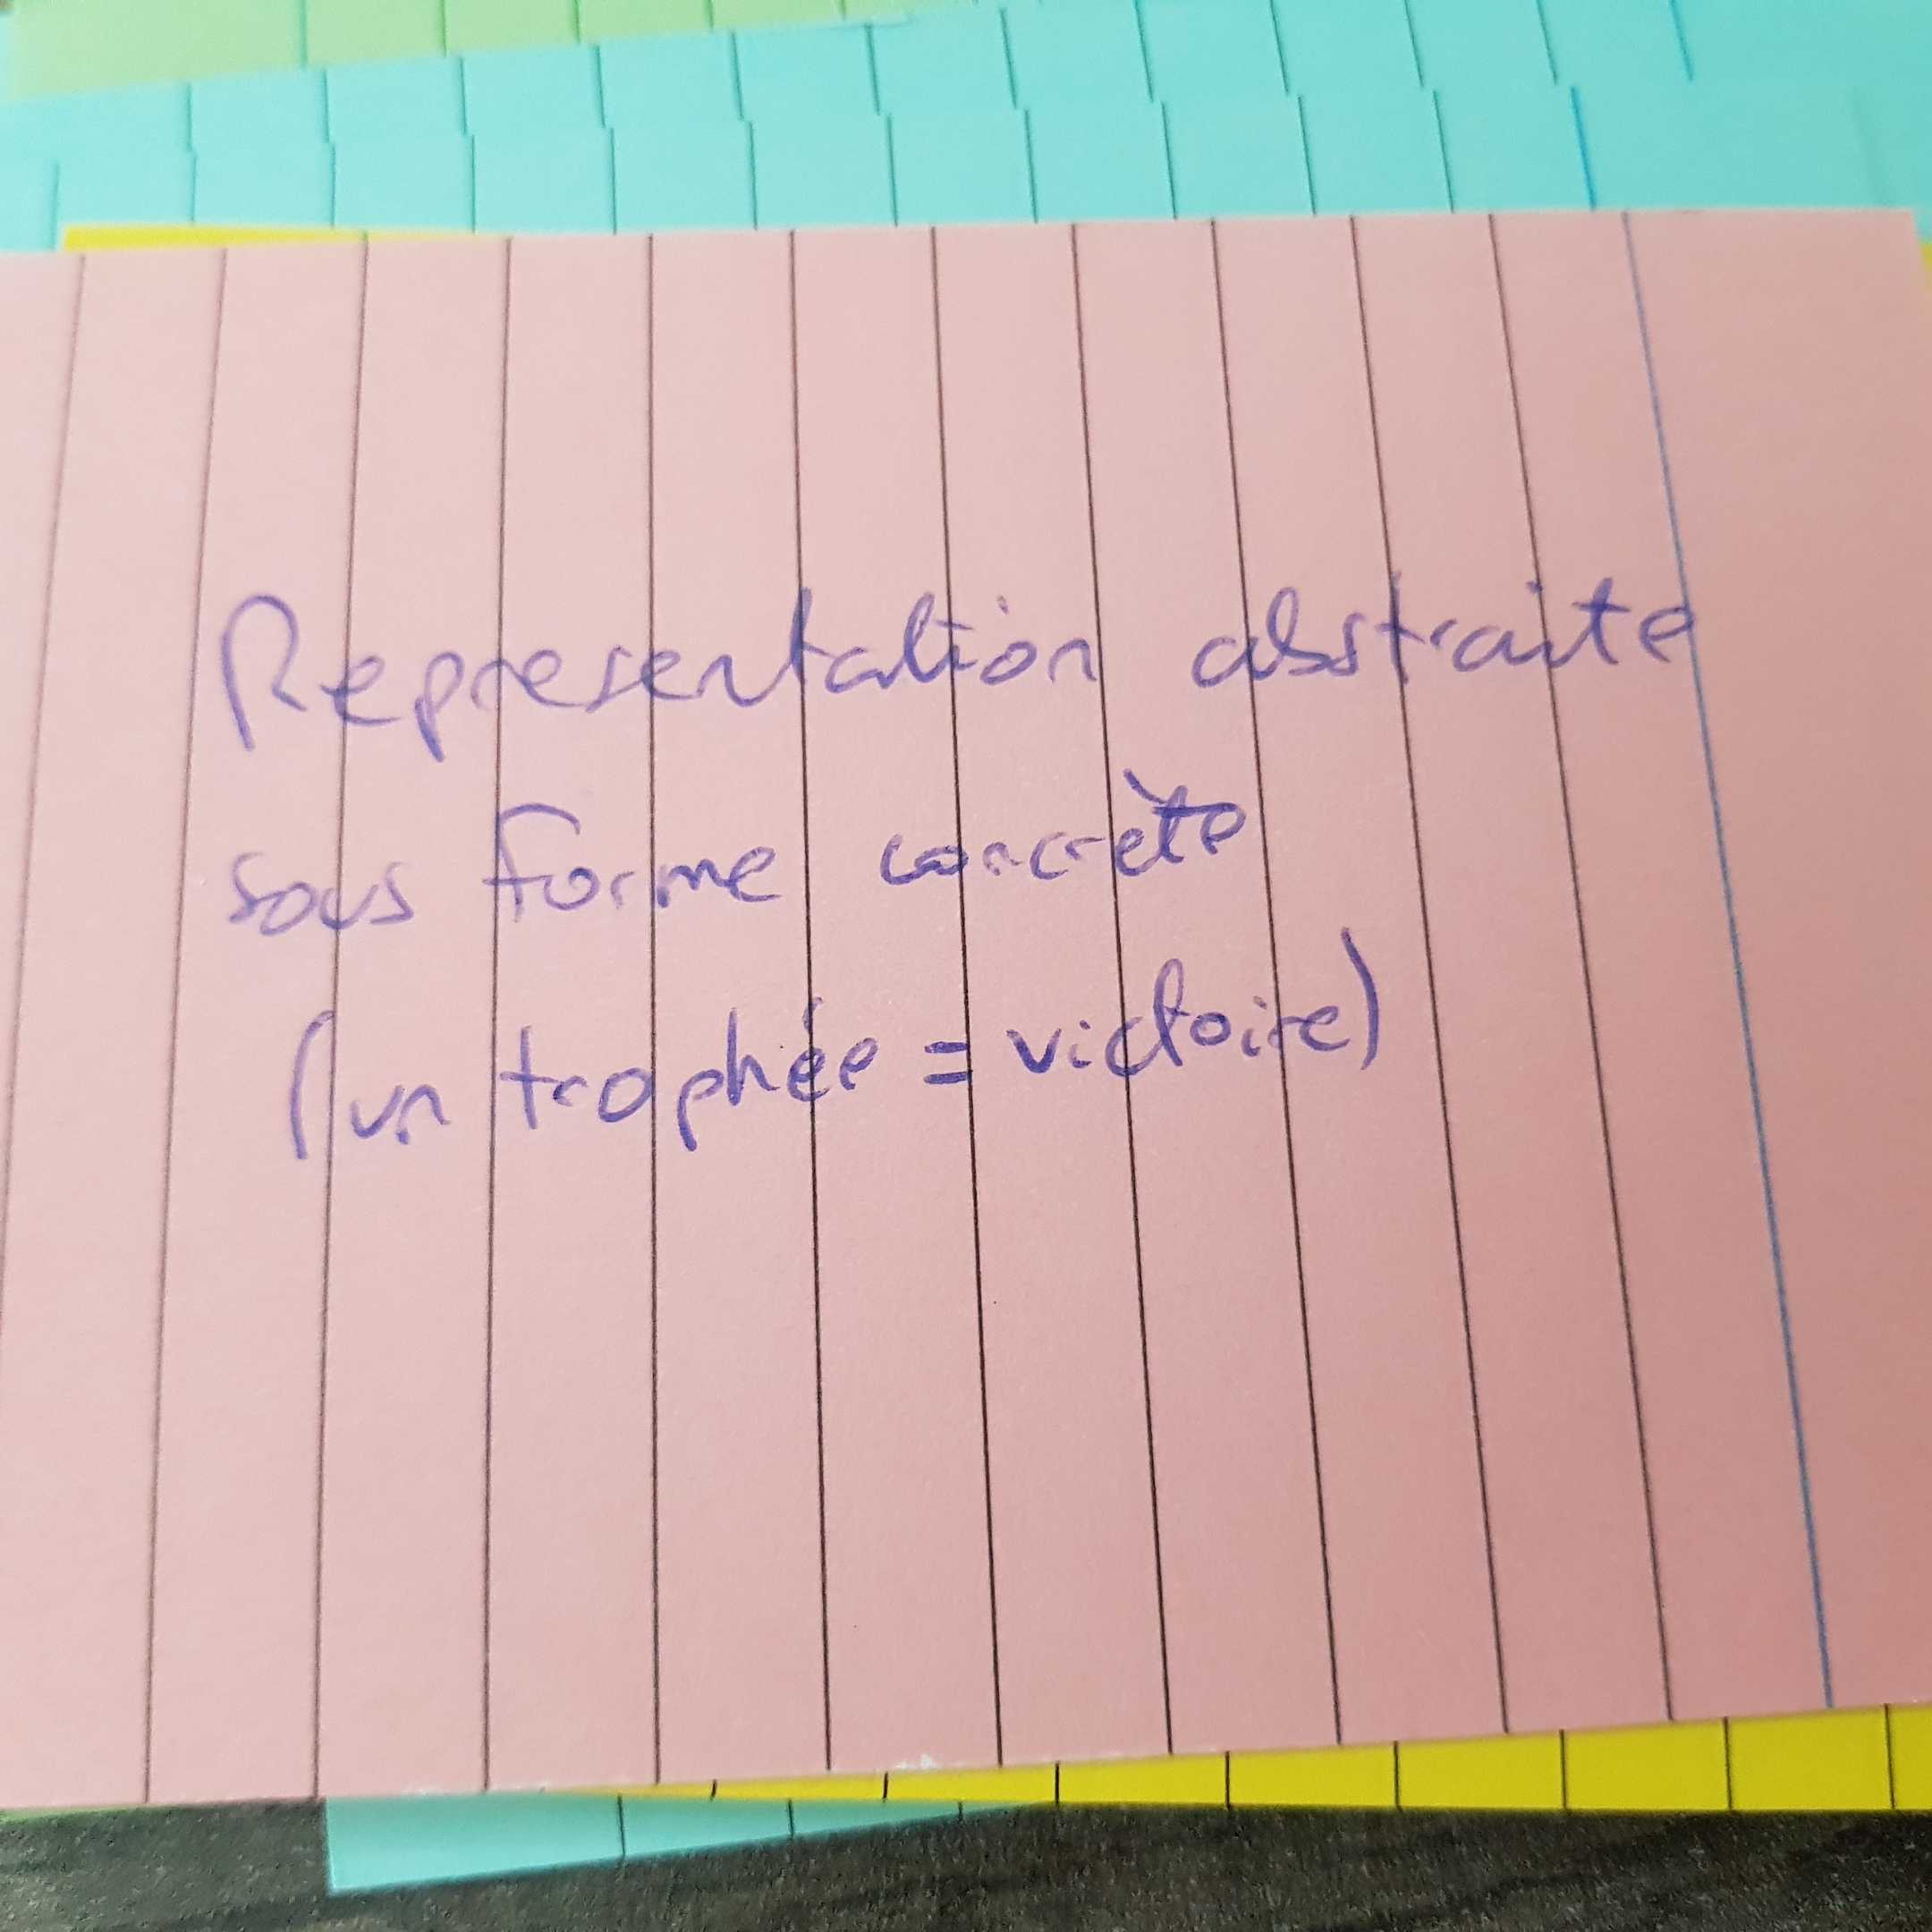 Representation abstraite
sous forme concrète
(un trophée = victoire)